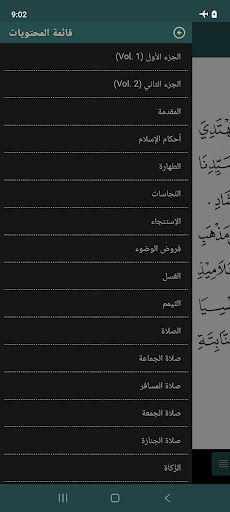 9:02
قائمة المحتويات
الجزء الأول (Vol. 1)
الجزء الثاني (Vol. 2)
المقدمة
أحكام الإسلام
الطهارة
النجاسات
الإستنجاء
فروض الوضوء
الغسل
التيمم
الصلاة
صلاة الجماعة
صلاة المسافر
صلاة الجمعة
صلاة الجنازة
الزكاة